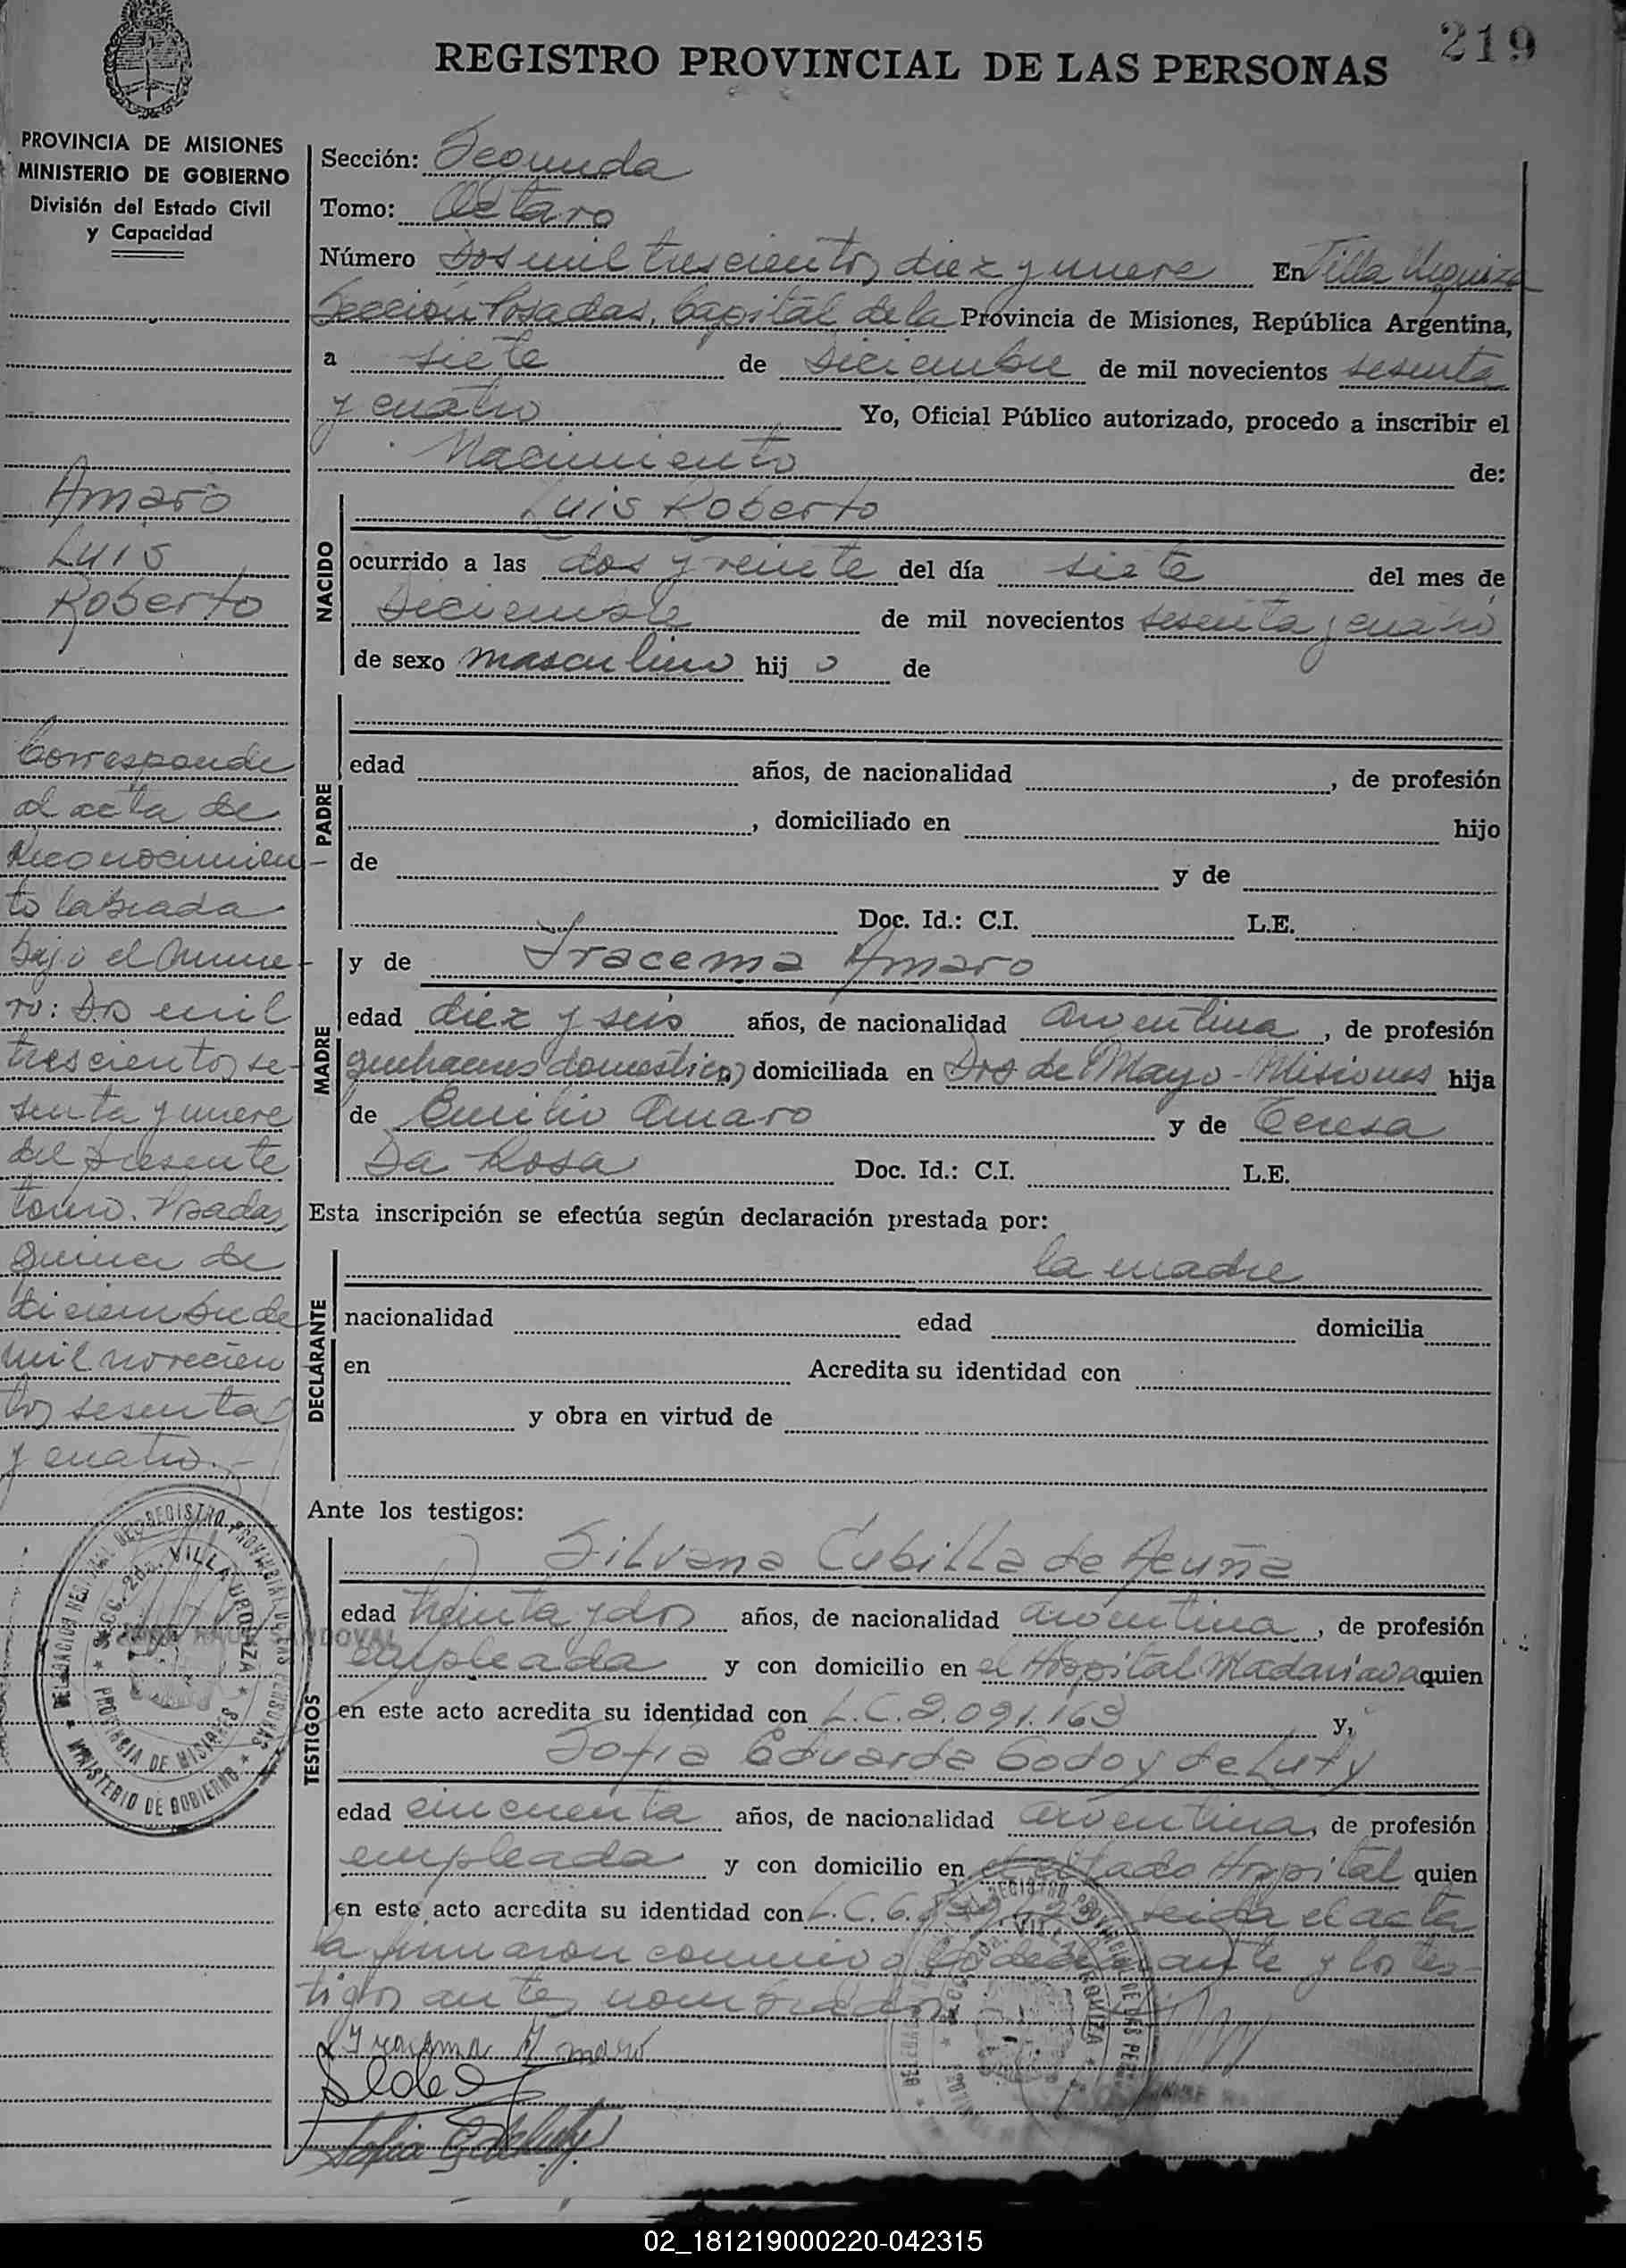 219
REGISTRO PROVINCIAL DE LAS PERSONAS
PROVINCIA DE MISIONES
MINISTERIO DE GOBIERNO
División del Estado Civil
y Capacidad
Amaro
Luis
Roberto
Corresponde
al acta de
Reconocimien-
to labrada
bajo el núme-
ro: Dos mil
trescientos se-
senta y nueve
del presente
tomo. Posadas,
quince de
diciembre de
mil novecien
tos sesenta
y cuatro.-
DELEGACION REGIONAL DEL REGISTRO PROVINCIAL DE LAS PERSONAS
SECC. 2da. VILLA URQUIZA
PROVINCIA DE MISIONES
MINISTERIO DE GOBIERNO
Sección: Segunda
Tomo: Octavo
Número Dos mil trescientos diez y nueve En Villa Urquiza
Sección Posadas, Capital de la Provincia de Misiones, República Argentina,
a siete de Diciembre de mil novecientos sesenta
y cuatro Yo, Oficial Público autorizado, procedo a inscribir el
Nacimiento de:
NACIDO
Luis Roberto
ocurrido a las dos y veinte del día siete del mes de
Diciembre de mil novecientos sesenta y cuatro
de sexo masculino hijo de
PADRE
edad años, de nacionalidad , de profesión
, domiciliado en hijo
de y de
Doc. Id.: C.I. L.E.
MADRE
y de Iracema Amaro
edad diez y seis años, de nacionalidad argentina, de profesión
quehaceres domésticos domiciliada en Dos de Mayo - Misiones hija
de Emilio Amaro y de Teresa
Da Rosa Doc. Id.: C.I. L.E.
Esta inscripción se efectúa según declaración prestada por:
DECLARANTE
la madre
nacionalidad edad domicilia
en Acredita su identidad con
y obra en virtud de
Ante los testigos:
TESTIGOS
Silvana Cubilla de Acuña
edad treinta y dos años, de nacionalidad argentina, de profesión
empleada y con domicilio en el Hospital Madariaga quien
en este acto acredita su identidad con L.C.2.091.163 y,
Sofia Eduarda Godoy de Luty
edad cincuenta años, de nacionalidad argentina, de profesión
empleada y con domicilio en el citado Hospital quien
en este acto acredita su identidad con L.C.6. leída el acta
la firmaron conmigo la declarante y los tes-
tigos antes nombrados
Iracema Amaro
02_181219000220-042315